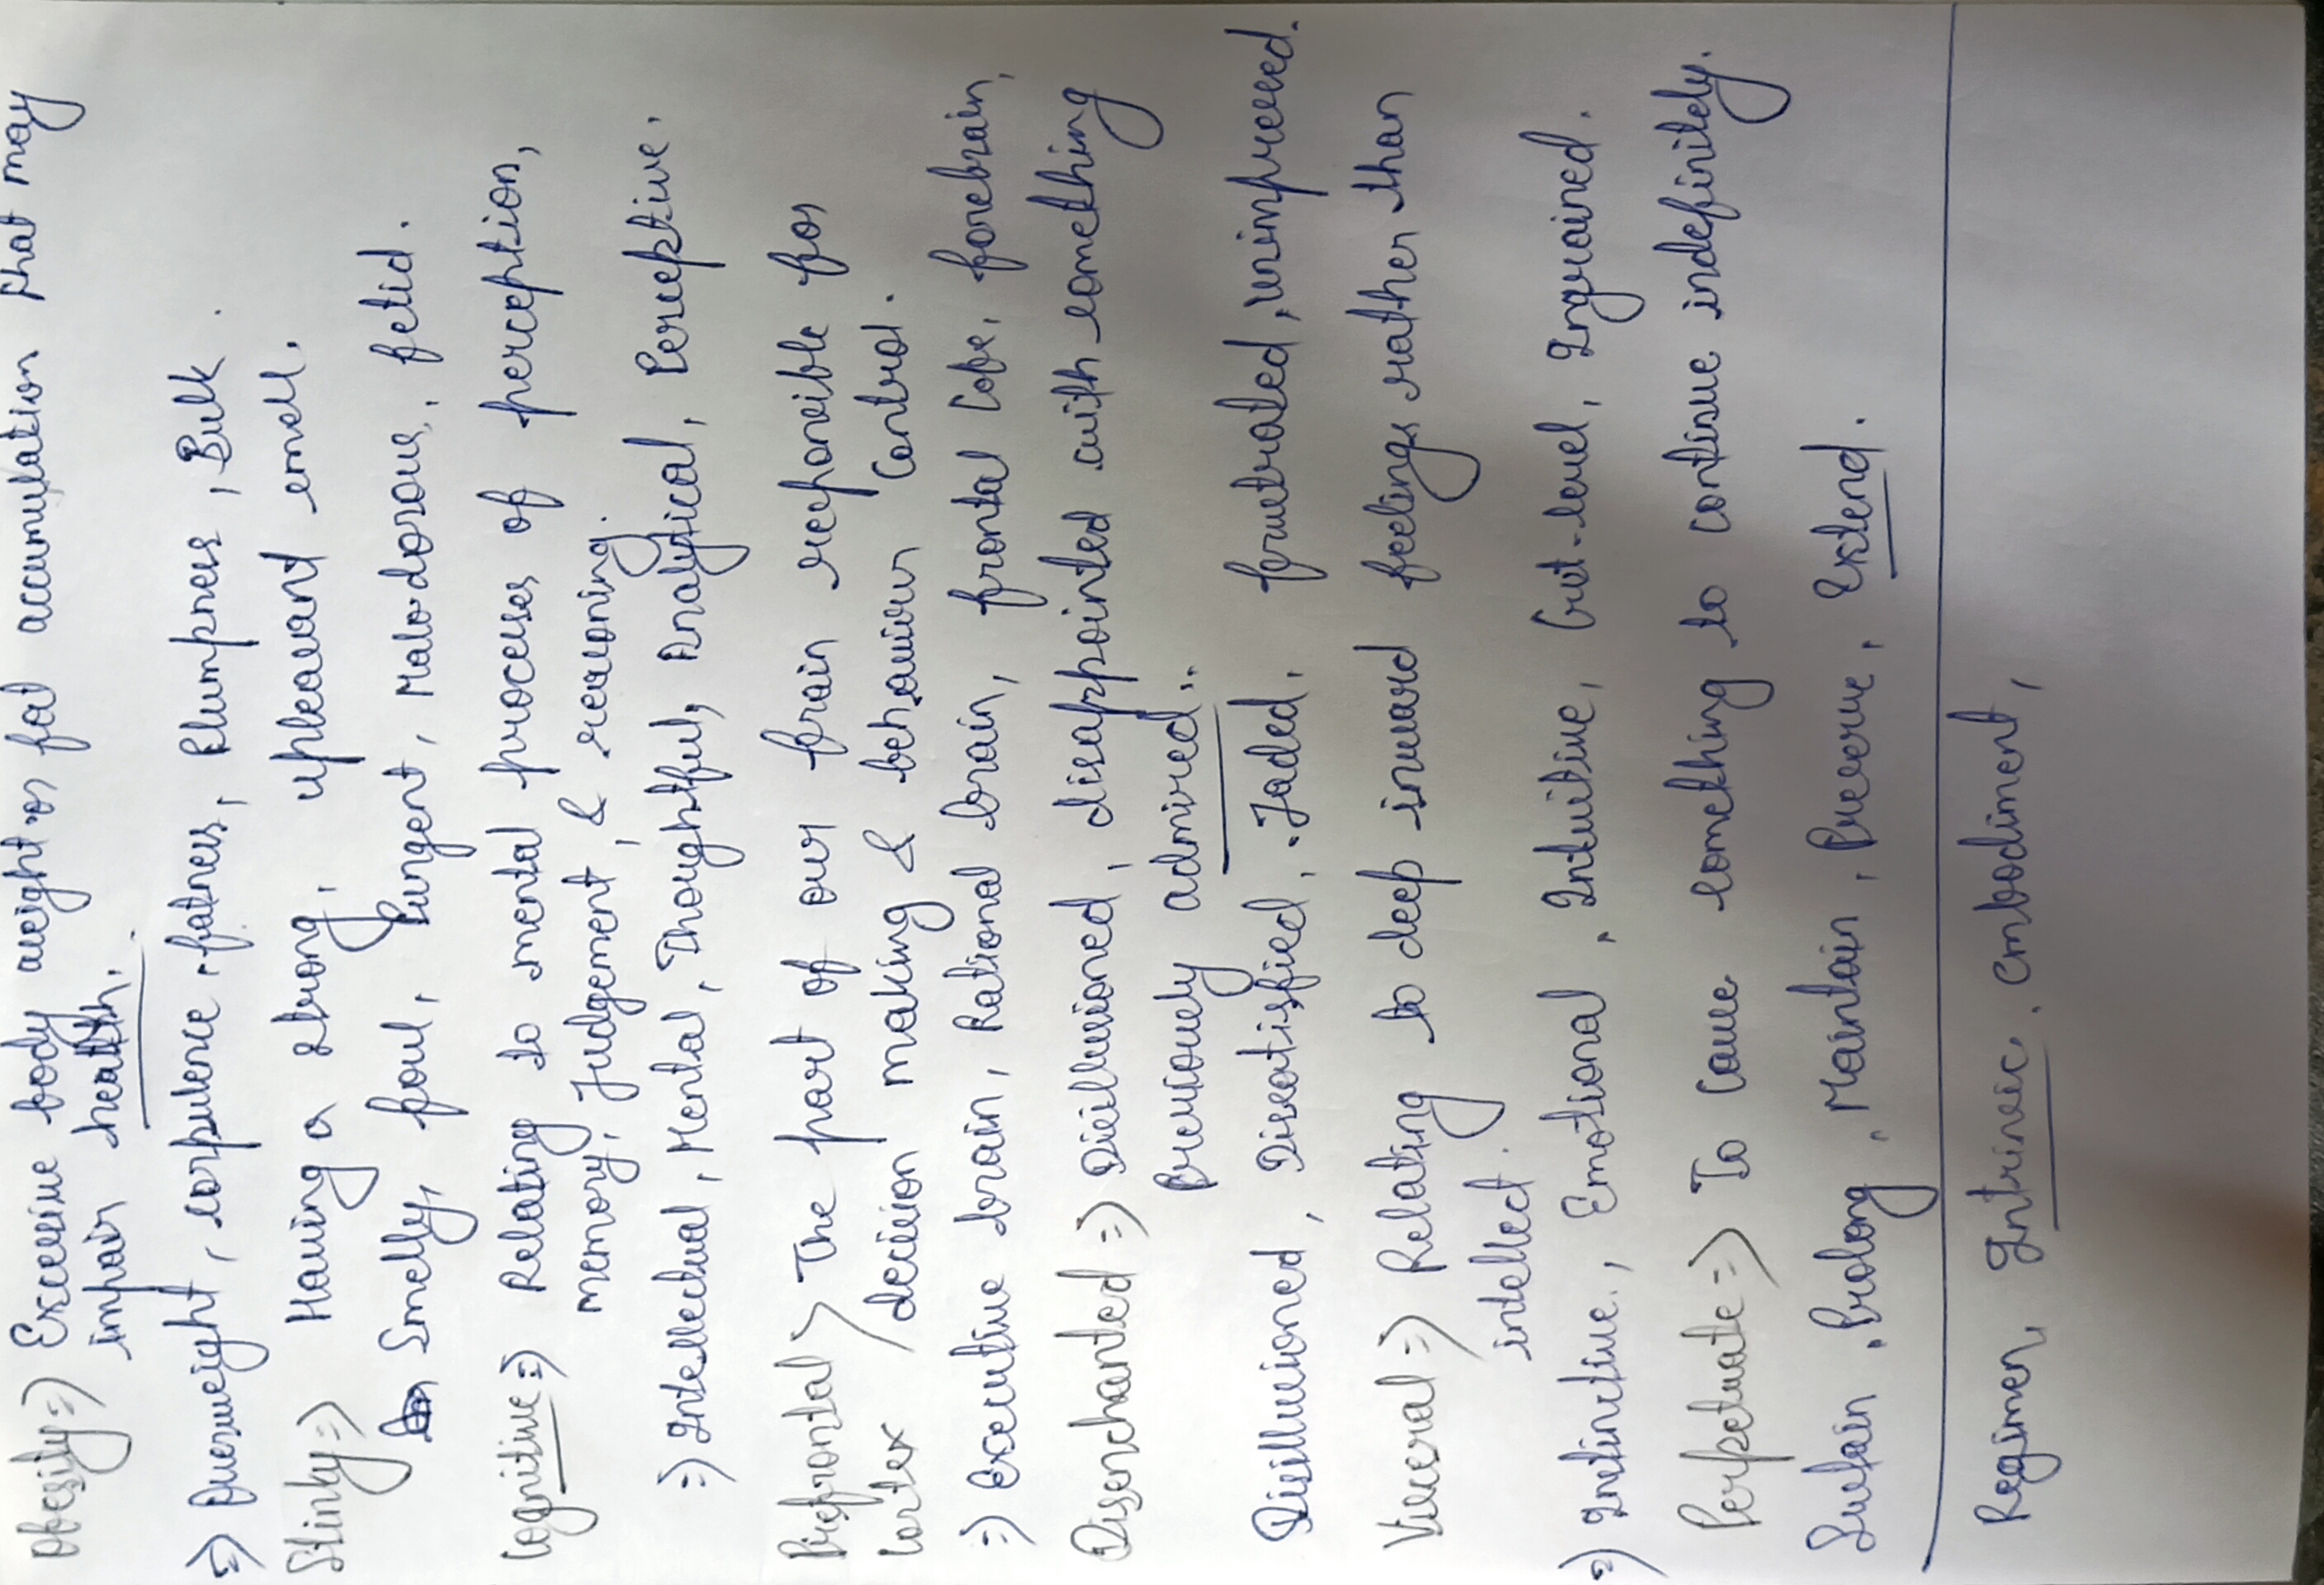 Obesity => Excessive body weight or fat accumulation that may
impair health.
=> Overweight, corpulence, fatness, Plumpness, Bulk.
Stinky => Having a strong, upleasant smell.
Smelly, foul, Pungent, Malodorous, fetid.
Cognitive => Relating to mental processes of perception,
memory, Judgement, & reasoning.
=> Intellectual, Mental, Thoughtful, Analytical, Perceptive.
Prefrontal > The part of our brain responsible for
Cortex decision making & behaviour Control.
=> Executive brain, Rational brain, frontal lobe, forebrain,
Disenchanted => Disillusioned, disappointed with something
Previously admired..
Disillusioned, Dissatisfied, Jaded, frustrated, unimpressed.
Visceral => Relating to deep inward feelings rather than
intellect.
=> Instinctive, Emotional, Intuitive, Gut-level, Ingrained.
Perpetuate => To Cause something to continue indefinitely.
Sustain, Prolong, Maintain, Preserve, Extend.
Regimen, Intrinsic, embodiment,